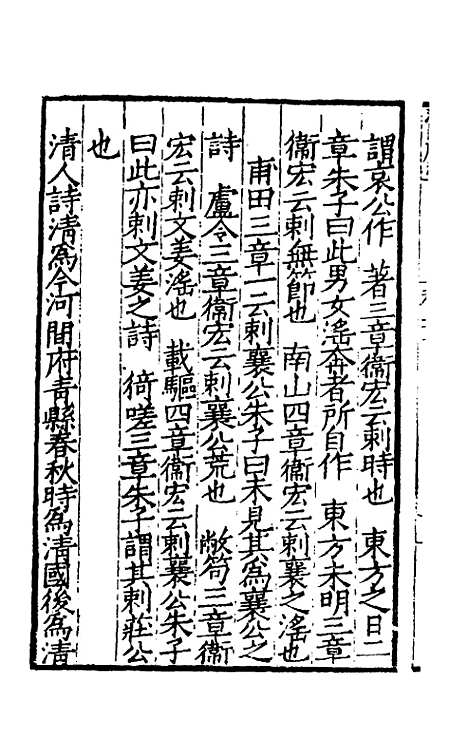 謂哀公作　著三章衞宏云刺時也　東方之日二
章朱子曰此男女滛奔者所自作　東方未明三章
衞宏云刺無節也　南山四章衞宏云刺襄之滛也
甫田三章一云刺襄公朱子曰未見其爲襄公之
詩　盧令三章衞宏云刺襄公荒也　敝笱三章衞
宏云刺文姜滛也　載驅四章衞宏云刺襄公朱子
曰此亦刺文姜之詩　猗嗟三章朱子謂其刺莊公
也
清人詩清爲今河間府青縣春秋時爲清國後爲清